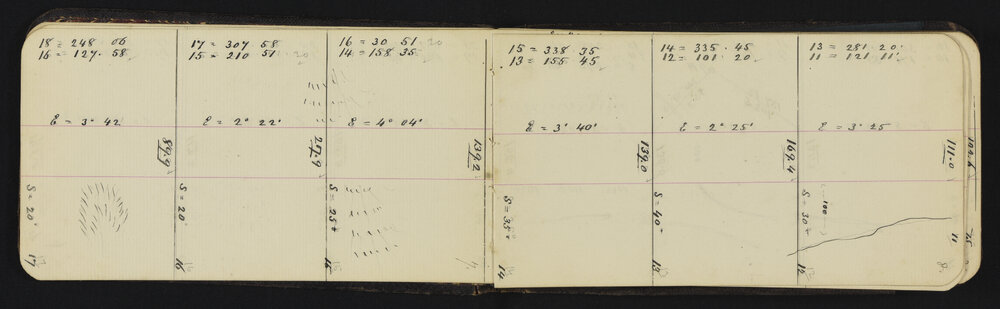 18 = 248 . 06
16 = 127 . 58
E = 3° 42
89.9
S = 20'
17
17 = 307 58
15 = 210 51
E = 2° 22'
S = 20'
16
16 = 30 51
14 = 158 35
E = 4° 04'
139.2
S = 25 ±
15
15 = 338 35
13 = 155 45
E = 3° 40'
139.0
S = 35 ±
14
14 = 335 . 45
12 = 101 . 20
E = 2° 25'
169.4
S = 40 ±
13
13 = 281 . 20
11 = 121 11'
E = 3° 25
111.0
S = 30 ±
100
12
11
75